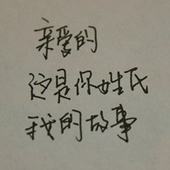 亲爱的
这是你姓氏
我的故事